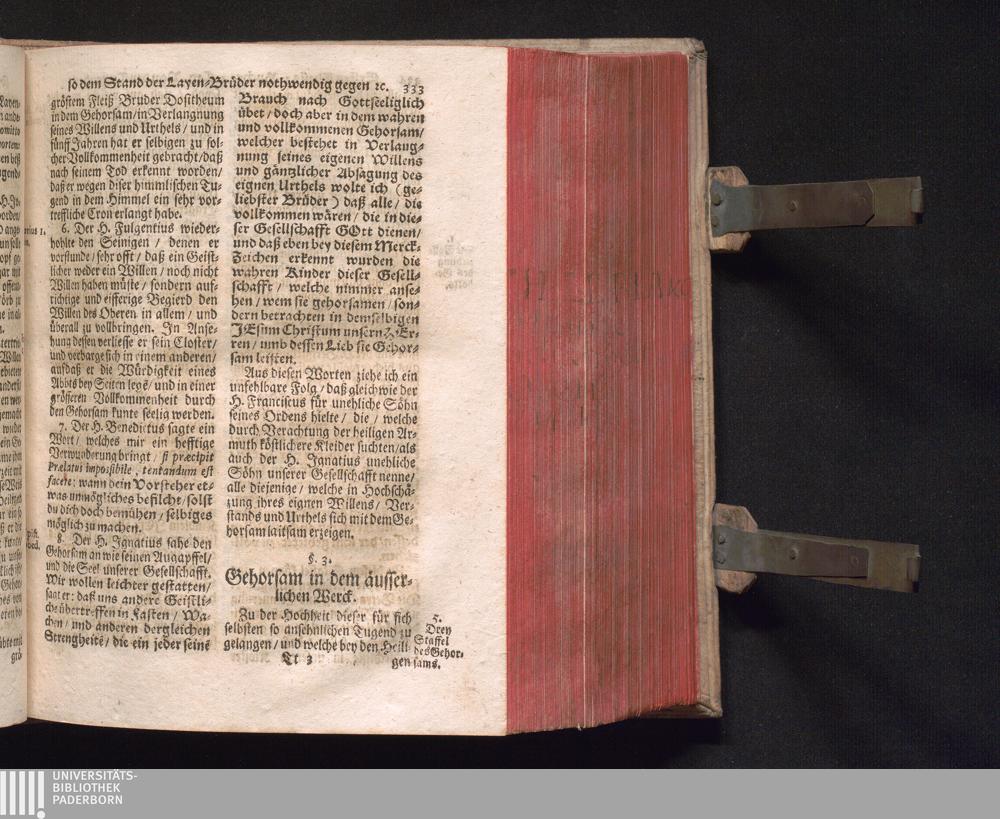 so dem Stand der Layen-Brüder nothwendig gegen ꝛc. 333
gröstem Fleiß Bruder Dositheum
in dem Gehorsam/in Verlangnung
seines Willens und Urthels / und in
fünff Jahren hat er selbigen zu sol-
cher Vollkommenheit gebracht/daß
nach seinem Tod erkennt worden/
daß er wegen diser himmlischen Tu-
gend in dem Himmel ein sehr vor-
treffliche Cron erlangt habe.
6. Der H. Fulgentius wieder-
hohlte den Seinigen / denen er
vorstunde / sehr offt / daß ein Geist-
licher weder ein Willen / noch nicht
Willen haben müste / sondern auf-
richtige und eifferige Begierd den
Willen des Oberen in allem / und
überall zu vollbringen. In Anse-
hung dessen verliesse er sein Closter/
und verbarge sich in einem anderen/
aufdaß er die Würdigkeit eines
Abbts bey Seiten legē/ und in einer
grösseren Vollkommenheit durch
den Gehorsam kunte seelig werden.
7. Der H. Benedictus sagte ein
Wort / welches mir ein hefftige
Verwunderung bringt / si præcipit
Prælatus impossibile, tentandum est
facere: wann dein Vorsteher et-
was unmögliches befilcht/ solst
du dich doch bemühen / selbiges
möglich zu machen.
8. Der H. Ignatius sahe den
Gehorsam an wie seinen Augapffel/
und die Seel unserer Gesellschafft.
Wir wollen leichter gestatten/
sagt er: daß uns andere Geistli-
che übertreffen in Fasten / Wa-
chen / und anderen dergleichen
Strengheitē / die ein jeder seinē
Brauch nach Gottseeliglich
übet / doch aber in dem wahren
und vollkommenen Gehorsam/
welcher bestehet in Verlang-
nung seines eigenen Willens
und gäntzlicher Absagung des
eignen Urthels wolte ich (ge-
liebster Brüder) daß alle / die
vollkommen wären / die in die-
ser Gesellschafft GOtt dienen/
und daß eben bey diesem Merck-
Zeichen erkennt wurden die
wahren Kinder dieser Gesell-
schafft / welche nimmer anse-
hen / wem sie gehorsamen / son-
dern betrachten in demselbigen
JEsum Christum unsern HEr-
ren / umb dessen Lieb sie Gehor-
sam leisten.
Aus diesen Worten ziehe ich ein
unfehlbare Folg / daß gleichwie der
H. Franciscus für unehliche Söhn
seines Ordens hielte / die / welche
durch Verachtung der heiligen Ar-
muth köstlichere Kleider suchten/als
auch der H. Ignatius unehliche
Söhn unserer Gesellschafft nenne/
alle diejenige / welche in Hochschä-
zung ihres eignen Willens / Ver-
stands und Urthels sich mit dem Ge-
horsam laitsam erzeigen.
§. 3.
Gehorsam in dem äusser-
lichen Werck.
Zu der Hochheit dieser für sich
selbsten so ansehnlichen Tugend zu
gelangen / und welche bey den Heili-
5.
Drey
Staffel
des Gehor-
sams.
Tt 3
gen
UNIVERSITÄTS-
BIBLIOTHEK
PADERBORN